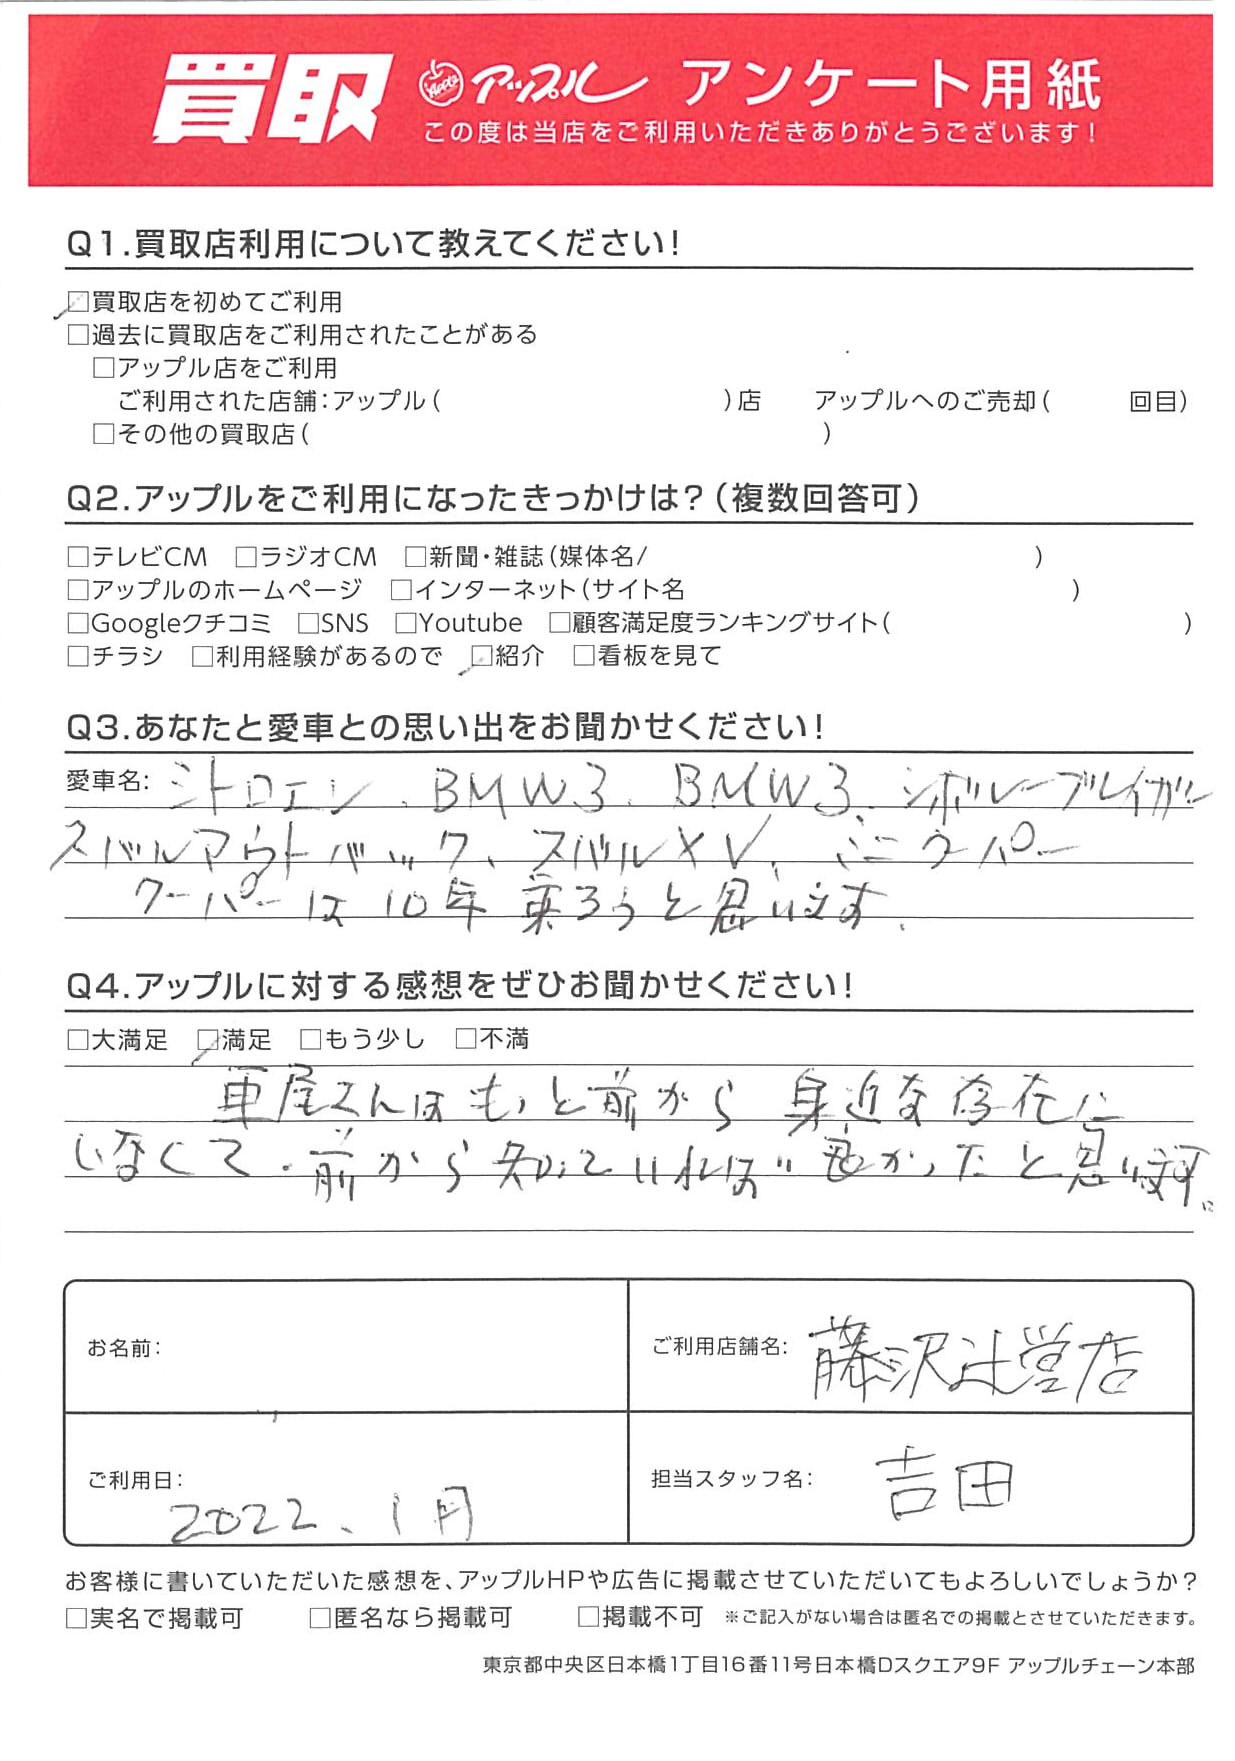 買取 Apple アップル アンケート用紙
この度は当店をご利用いただきありがとうございます!
Q1.買取店利用について教えてください!
☑買取店を初めてご利用
□過去に買取店をご利用されたことがある
□アップル店をご利用
ご利用された店舗:アップル( )店 アップルへのご売却( 回目)
□その他の買取店( )
Q2.アップルをご利用になったきっかけは?(複数回答可)
□テレビCM □ラジオCM □新聞・雑誌(媒体名/ )
□アップルのホームページ □インターネット(サイト名 )
□Googleクチコミ □SNS □Youtube □顧客満足度ランキングサイト( )
□チラシ □利用経験があるので ☑紹介 □看板を見て
Q3.あなたと愛車との思い出をお聞かせください!
愛車名: シトロエン、BMW3、BMW3、シボレーブレイザー
スバルアウトバック、スバルXV、ミニクーパー
クーパーは10年乗ろうと思います。
Q4.アップルに対する感想をぜひお聞かせください!
□大満足 ☑満足 □もう少し □不満
車屋さんはもっと前から身近な存在に
しなくて、前から知っていれば良かったと思います。
お名前:
ご利用店舗名: 藤沢辻堂店
ご利用日: 2022、1月
担当スタッフ名: 吉田
お客様に書いていただいた感想を、アップルHPや広告に掲載させていただいてもよろしいでしょうか?
□実名で掲載可 □匿名なら掲載可 □掲載不可 ※ご記入がない場合は匿名での掲載とさせていただきます。
東京都中央区日本橋1丁目16番11号日本橋Dスクエア9F アップルチェーン本部